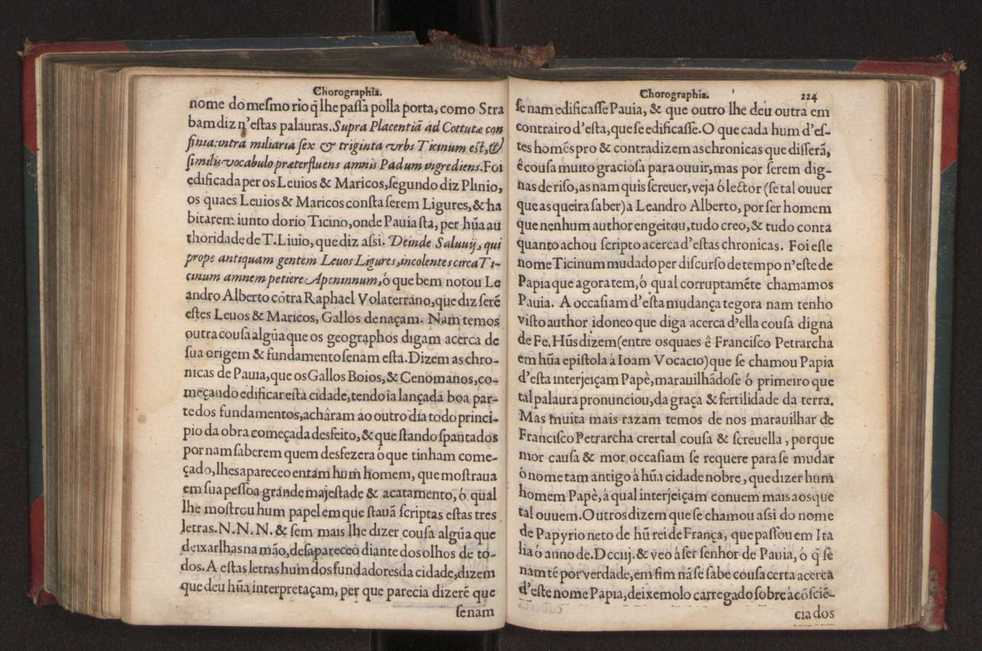 Chorographia.
nome do mesmo rio q̃ lhe passa polla porta, como Stra
bam diz n'estas palauras. Supra Placentiã ad Cottutæ con
finia vntra miliaria sex & triginta vrbs Ticinum est, &
similis vocabulo præterfluens amnis Padum ingrediens. Foi
edificada per os Leuios & Maricos, segundo diz Plinio,
os quaes Leuios & Maricos consta serem Ligures, & ha
bitarem iunto do rio Ticino, onde Pauia sta, per hũa au
thoridade de T. Liuio, que diz assi. Deinde Saluuij, qui
prope antiquam gentem Leuos Ligures, incolentes circa Ti-
cinum amnem petiere Apeninum, ó que bem notou Le
andro Alberto cõtra Raphael Volaterrano, que diz serẽ
estes Leuos & Maricos, Gallos de naçam. Nam temos
outra cousa algũa que os geographos digam acerca de
sua origem & fundamento senam esta. Dizem as chro-
nicas de Pauia, que os Gallos Boios, & Cenomanos, co-
meçando edificar esta cidade, tendo ia lançada boa par-
te dos fundamentos, acháram ao outro dia todo princi-
pio da obra começada desfeito, & que stando spantados
por nam saberem quem desfezera ó que tinham come-
çado, lhes apareceo entam hum homem, que mostraua
em sua pessoa grande majestade & acatamento, ó qual
lhe mostrou hum papel em que stauã scriptas estas tres
letras. N. N. N. & sem mais lhe dizer cousa algũa que
deixarlhas na mão, desapareceo diante dos olhos de to-
dos. A estas letras hum dos fundadores da cidade, dizem
que deu hũa interpretaçam, per que parecia dizerẽ que
senam
Chorographia. 224
se nam edificasse Pauia, & que outro lhe deu outra em
contrairo d'esta, que se edificasse. O que cada hum d'es-
tes homẽs pro & contra dizem as chronicas que disserã,
ê cousa muito graciosa para ouuir, mas por serem dig-
nas de riso, as nam quis screuer, veja ó lector (se tal ouuer
que as queira saber) a Leandro Alberto, por ser homem
que nenhum author engeitou, tudo creo, & tudo conta
quanto achou scripto acerca d'estas chronicas. Foi este
nome Ticinum mudado per discurso de tempo n'este de
Papia que agora tem, ó qual corruptamẽte chamamos
Pauia. A occasiam d'esta mudança tegora nam tenho
visto author idoneo que diga acerca d'ella cousa digna
de Fe. Hũs dizem (entre os quaes ê Francisco Petrarcha
em hũa epistola à Ioam Vocacio) que se chamou Papia
d'esta interjeiçam Papè, marauilhãdose ó primeiro que
tal palaura pronunciou, da graça & fertilidade da terra.
Mas muita mais razam temos de nos marauilhar de
Francisco Petrarcha crer tal cousa & screuella, porque
mor causa & mor occasiam se requere para se mudar
ó nome tam antigo à hũa cidade nobre, que dizer hum
homem Papè, à qual interjeiçam conuem mais aos que
tal ouuem. Outros dizem que se chamou assi do nome
de Papyrio neto de hũ rei de França, que passou em Ita
lia ó anno de. Dcciij. & veo à ser senhor de Pauia, ó q̃ se
nam tẽ por verdade, em fim nã se sabe cousa certa acerca
d'este nome Papia, deixemolo carregado sobre à cõsciẽ-
cia dos